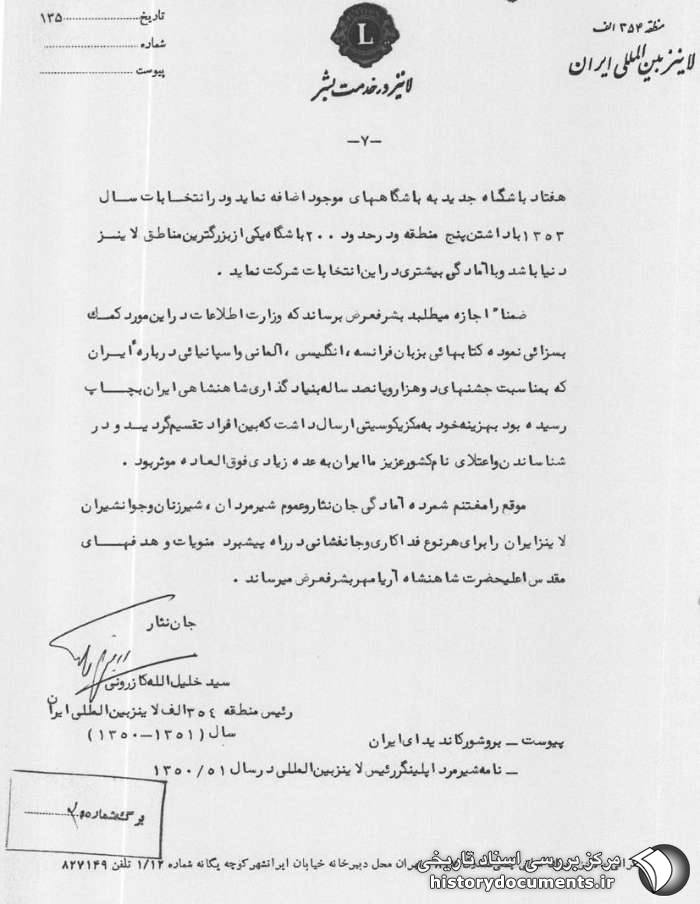 منطقه ۳۵۴ الف
لاینز بین‌المللی ایران
لاینز در خدمت بشر
تاریخ ............ ۱۳۵
شماره ............
پیوست ............
L
-۷-
هفتاد باشگاه جدید به باشگاههای موجود اضافه نماید و در انتخابات سال
۱۳۵۳ با داشتن پنج منطقه و در حدود ۲۰۰ باشگاه یکی از بزرگترین مناطق لاینز
دنیا باشد و با آمادگی بیشتری در این انتخابات شرکت نماید .
ضمناً اجازه میطلبد بشرفعرض برساند که وزارت اطلاعات در این مورد کمک
بسزائی نموده کتابهائی بزبان فرانسه ، انگلیسی ، آلمانی و اسپانیائی درباره ایران
که بمناسبت جشنهای دو هزار و پانصد ساله بنیاد گذاری شاهنشاهی ایران بچاپ
رسیده بود بهزینه خود به مکزیکوسیتی ارسال داشت که بین افراد تقسیم گردید و در
شناساندن و اعتلای نام کشور عزیز ما ایران به عده زیادی فوق العاده موثر بود .
موقع را مغتنم شمرده آمادگی جان نثار و عموم شیرمردان ، شیرزنان و جوانشیران
لاینز ایران را برای هر نوع فداکاری و جانفشانی در راه پیشبرد منویات و هدفهای
مقدس اعلیحضرت شاهنشاه آریامهر بشرفعرض میرساند .
جان نثار
سید خلیل الله کازرونی
رئیس منطقه ۳۵٤ الف لاینز بین المللی ایران
سال (۱۳۵۱-۱۳۵۰)
پیوست - بروشور کاندیدای ایران
- نامه شیرمرد اپلینگر رئیس لاینز بین المللی در سال ۱۳۵۰/۵۱
برگ شماره
تهران محل دبیرخانه خیابان ایرانشهر کوچه یگانه شماره ۱/۱۲ تلفن ۸۲۷۱۴۹
مرکز بررسی اسناد تاریخی
historydocuments.ir